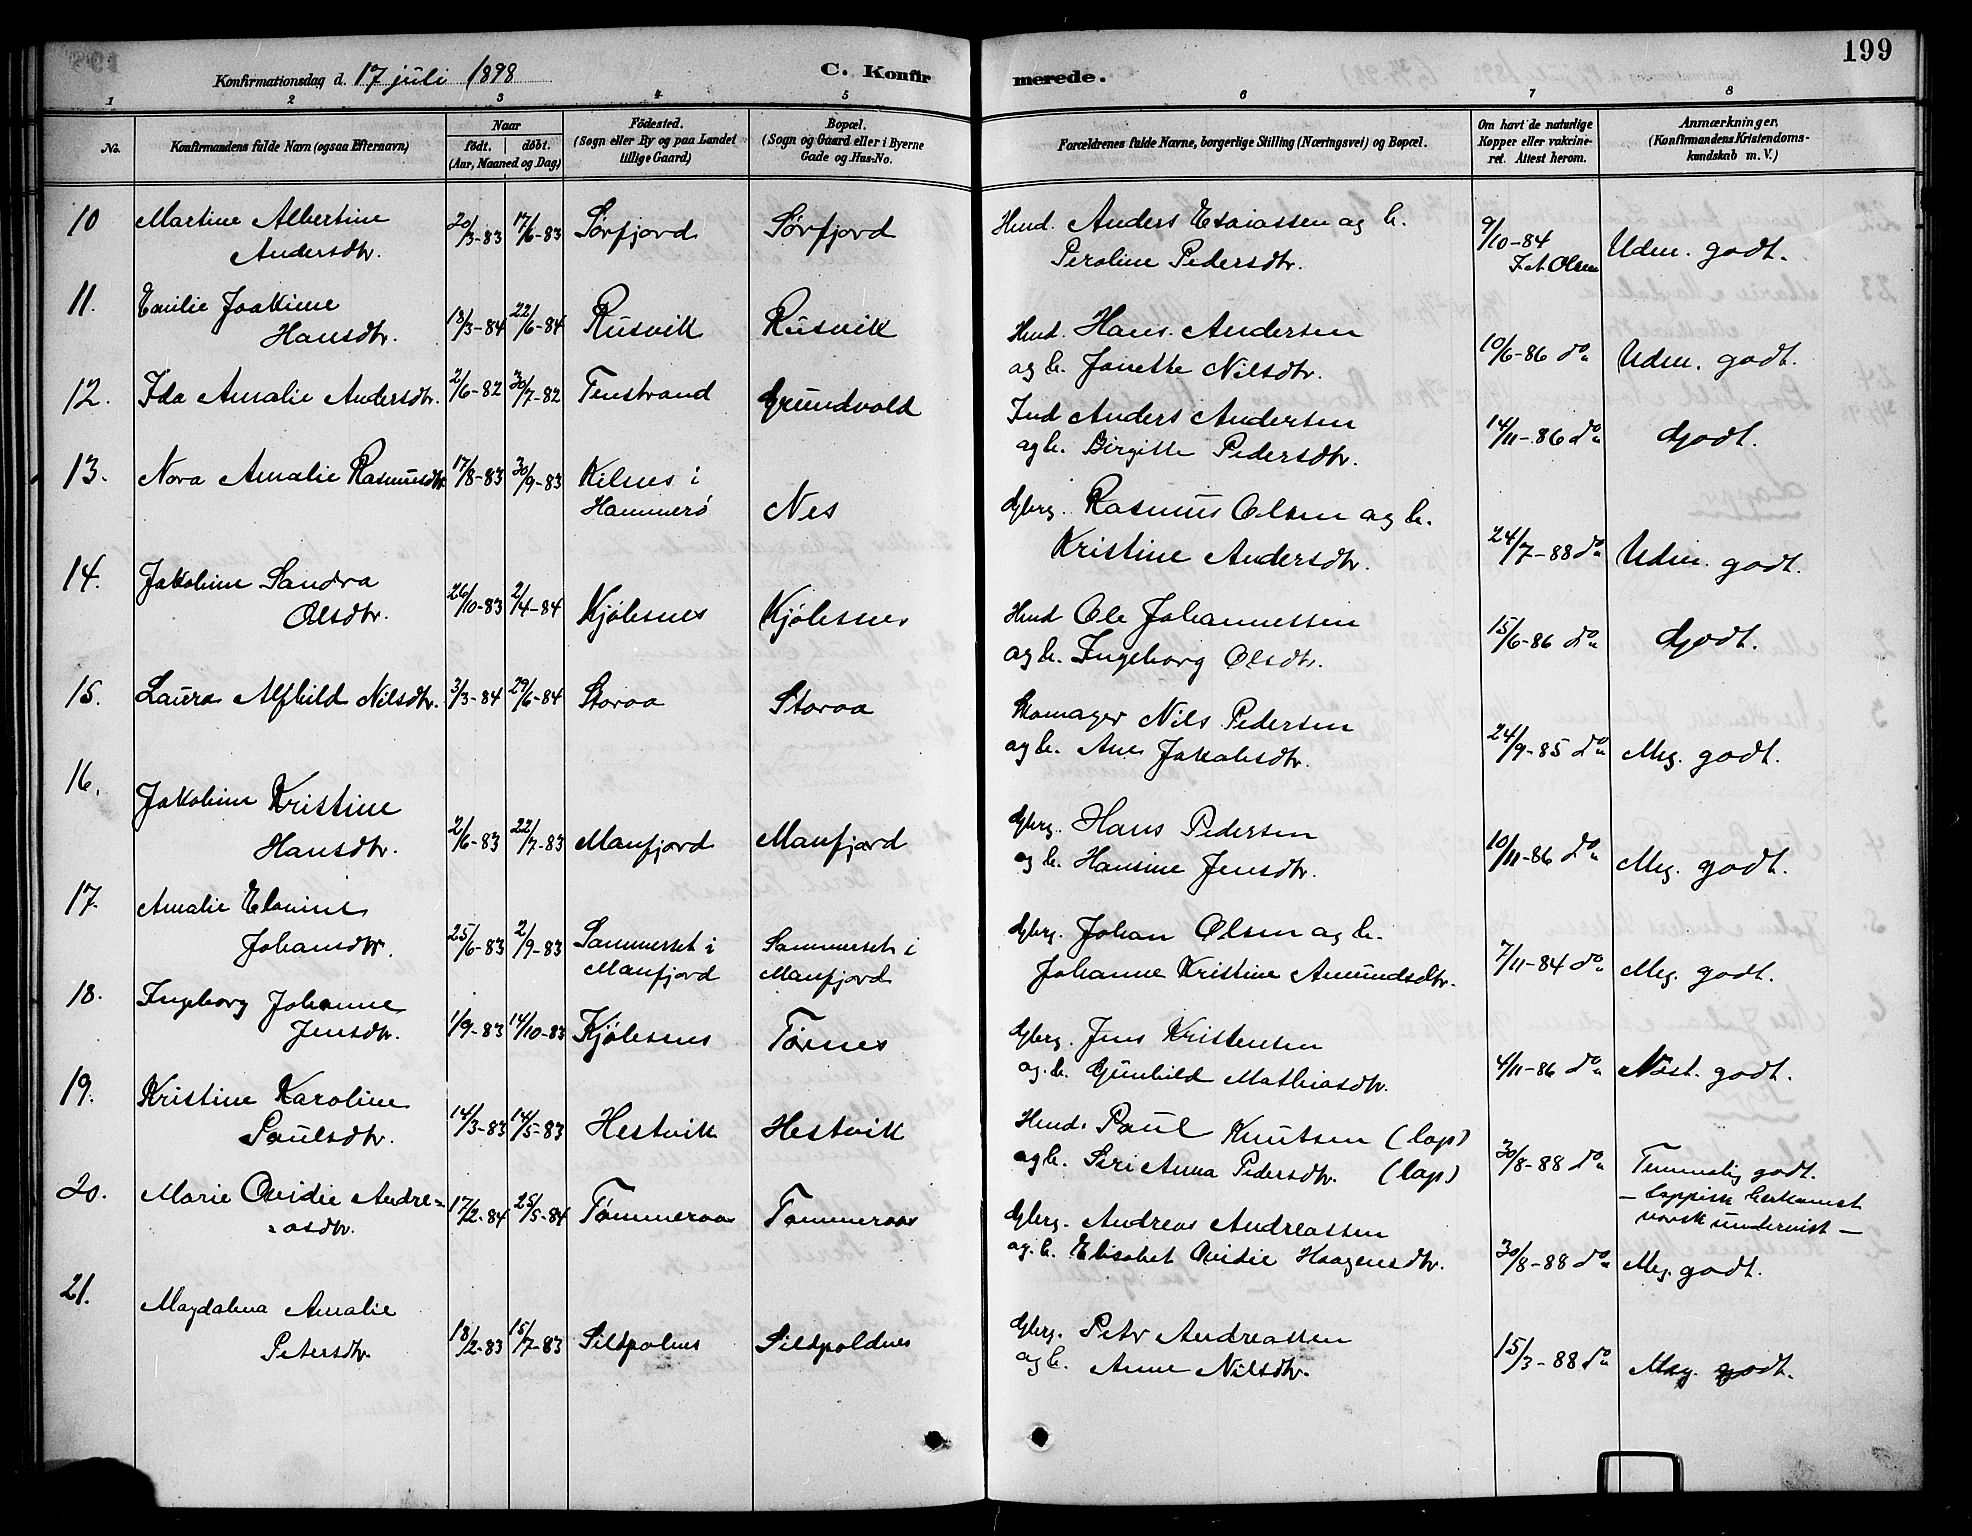 199
Konfirmationsdag d. 17 juli 1898 C. Konfirmerede.
1 2 3 4 5 6 7 8
No. Konfirmandens fulde Navn (ogsaa Efternavn) Naar födt. döbt. (Aar, Maaned og Dag) Födested. (Sogn eller By og paa Landet tillige Gaard) Bopæl. (Sogn og Gaard eller i Byerne Gade og Hus-No. Forældrenes fulde Navne, borgerlige Stilling (Næringsvei) og Bopæl. Om havt de naturlige Kopper eller vakcineret. Attest herom. Anmærkninger. (Konfirmandens Kristendomskundskab m. V.)
10 Martine Albertine 20/3-83 17/6-83 Sørfjord Sørfjord Husd. Anders Esaiassen og h. 9/10-84
Andersdtr. Peroline Pedersdtr. Olsen Udm. godt.
11. Emilie Joakime 13/3-84 22/6-84 Rusvik Rusvik Husd. Hans Andersen
Hansdtr. og h. Janette Nilsdtr. 10/6-86 do Udm. godt.
12. Ida Amalie Andersdtr. 2/6-82 30/7-82 Tenstrand Grundvold Ind Anders Andersen
og h. Birgitte Pedersdtr. 14/11-86 do Godt.
13. Nora Amalie Rasmusdtr 17/8-83 30/9-83 Kilnes i Gbrg. Rasmus Olsen og h.
Hammerø Nes Kristine Andersdtr. 24/7-88 do Udm. godt.
14. Jakobine Sandra 26/10-83 2/4-84 Kjølesnes Kjølesnes Husd Ole Johannessen
Olsdtr. og h. Ingeborg Olsdtr. 15/6-86 do Godt.
15. Laura Alfhild Nilsdtr. 3/3-84 29/6-84 Storaa Storaa Skomager Nils Pedersen
og h. Ane Jakobsdtr. 24/9-85 do Meg. godt.
16. Jakobine Kristine Gbrg. Hans Pedersen
Hansdtr. 2/6-83 22/7-83 Manfjord Manfjord og h. Hansine Jensdtr. 10/11-86 do Meg. godt.
17. Amalie Elonine Gbrg. Johan Olsen og h.
Johansdtr. 25/6-83 2/9-83 Sammerset i Sammerset i
Manfjord Manfjord Johanne Kristine Amundsdtr. 7/11-84 do Meg. godt.
18. Ingeborg Johanne Gbrg. Jens Kristensen
Jensdtr. 1/9-83 14/10-83 Kjølesnes Tørnes og h. Gunhild Mathiasdtr. 4/11-86 do Næst. godt.
19. Kristine Karoline Husd. Paul Knutsen (lap)
Paulsdtr. 14/3-83 14/5-83 Hestvik Hestvik og h. Siri Anna Pedersdtr. (lap) 30/8-88 do Temmelig godt.
– lappisk herkomst
norsk undervist –
20. Marie Ovidie Andre= 17/2-84 25/5-84 Tømmeraas Tømmeraas Gbrg. Andreas Andreassen
=asdtr. og h. Elisabet Ovidie Haagensdtr. 30/8-88 do Meg godt.
21. Magdalena Amalie Gbrg. Peter Andreassen
Petersdtr. 18/2-83 15/7-83 Sildpolnes Sildpoldnes og h. Anne Nilsdtr. 15/3-88 do Meg. godt.